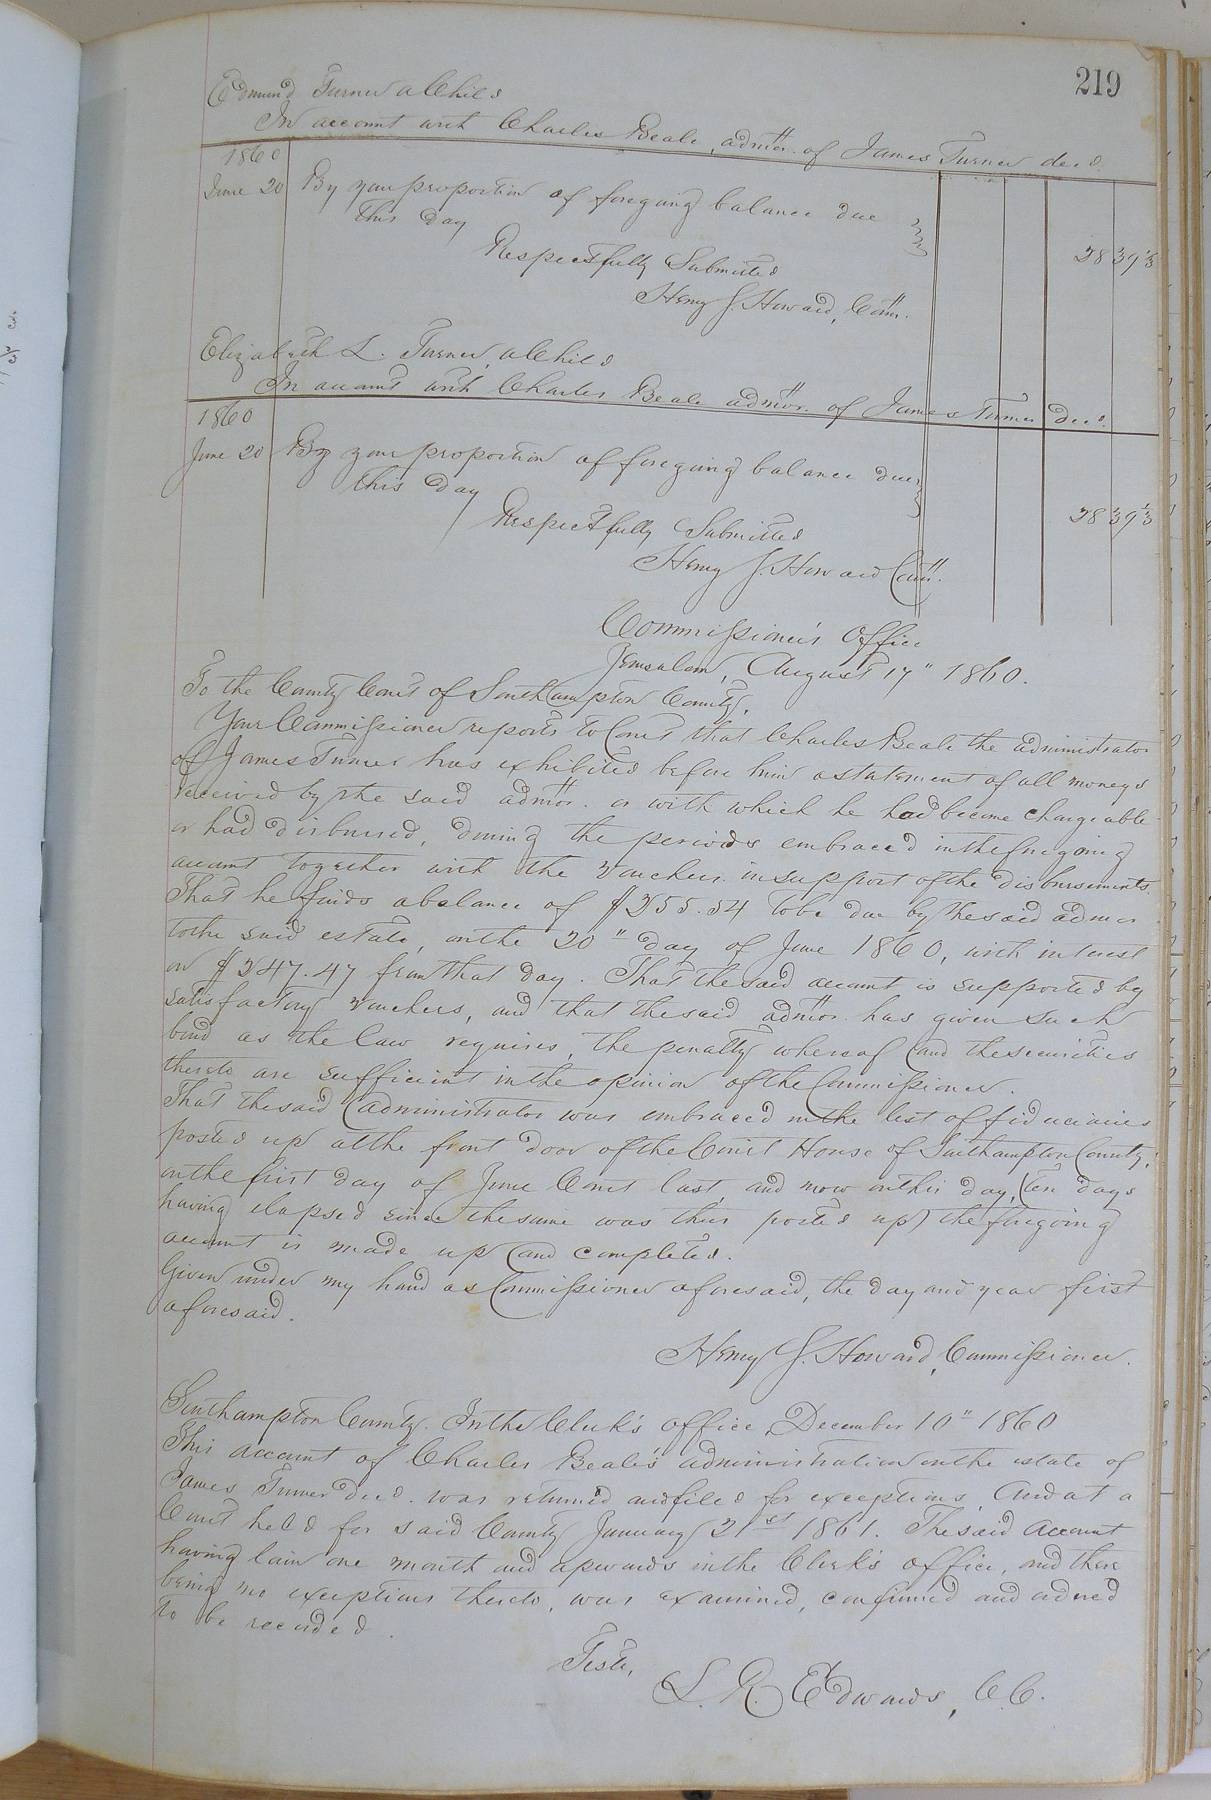 219
Edmund Turner a Child
In account with Charles Beale, admor. of James Turner decd.
1860
June 20 By your proportion of foregoing balance due
this day 28 39 1/3
Respectfully Submitted
Henry J. Howard, Comr.
Elizabeth L. Turner, a Child
In account with Charles Beale admor. of James Turner decd.
1860
June 20 By your proportion of foregoing balance due
this day 28 39 1/3
Respectfully Submitted
Henry J. Howard Comr.
Commissioner's Office
Jerusalem, August 17" 1860.
To the County Court of Southampton County.
Your Commissioner reports to Court that Charles Beale the administrator
of James Turner has exhibited before him a statement of all moneys
received by the said admor. or with which he had become chargeable
or had disbursed, during the periods embraced in the foregoing
account together with the vouchers in support of the disbursements.
That he finds a balance of $255.54 to be due by the said admor
to the said estate, on the 20" day of June 1860, with interest
on $247.47 from that day. That the said account is supported by
satisfactory vouchers, and that the said admor. has given such
bond as the law requires, the penalty whereof and the securities
thereto are sufficient in the opinion of the Commissioner.
That the said administrator was embraced in the list of fiduciaries
posted up at the front door of the Court House of Southampton County,
on the first day of June Court last, and now on this day, (ten days
having elapsed since the same was thus posted up) the foregoing
account is made up and completed.
Given under my hand as Commissioner aforesaid, the day and year first
aforesaid.
Henry J. Howard, Commissioner.
Southampton County. In the Clerk's office, December 10" 1860
This account of Charles Beale's administration on the estate of
James Turner decd. was returned and filed for exceptions. And at a
Court held for said County January 21st 1861. The said account
having lain one month and upwards in the Clerk's office, and there
being no exceptions thereto, was examined, confirmed and ordered
to be recorded.
Teste,
L. R. Edwards, C.C.